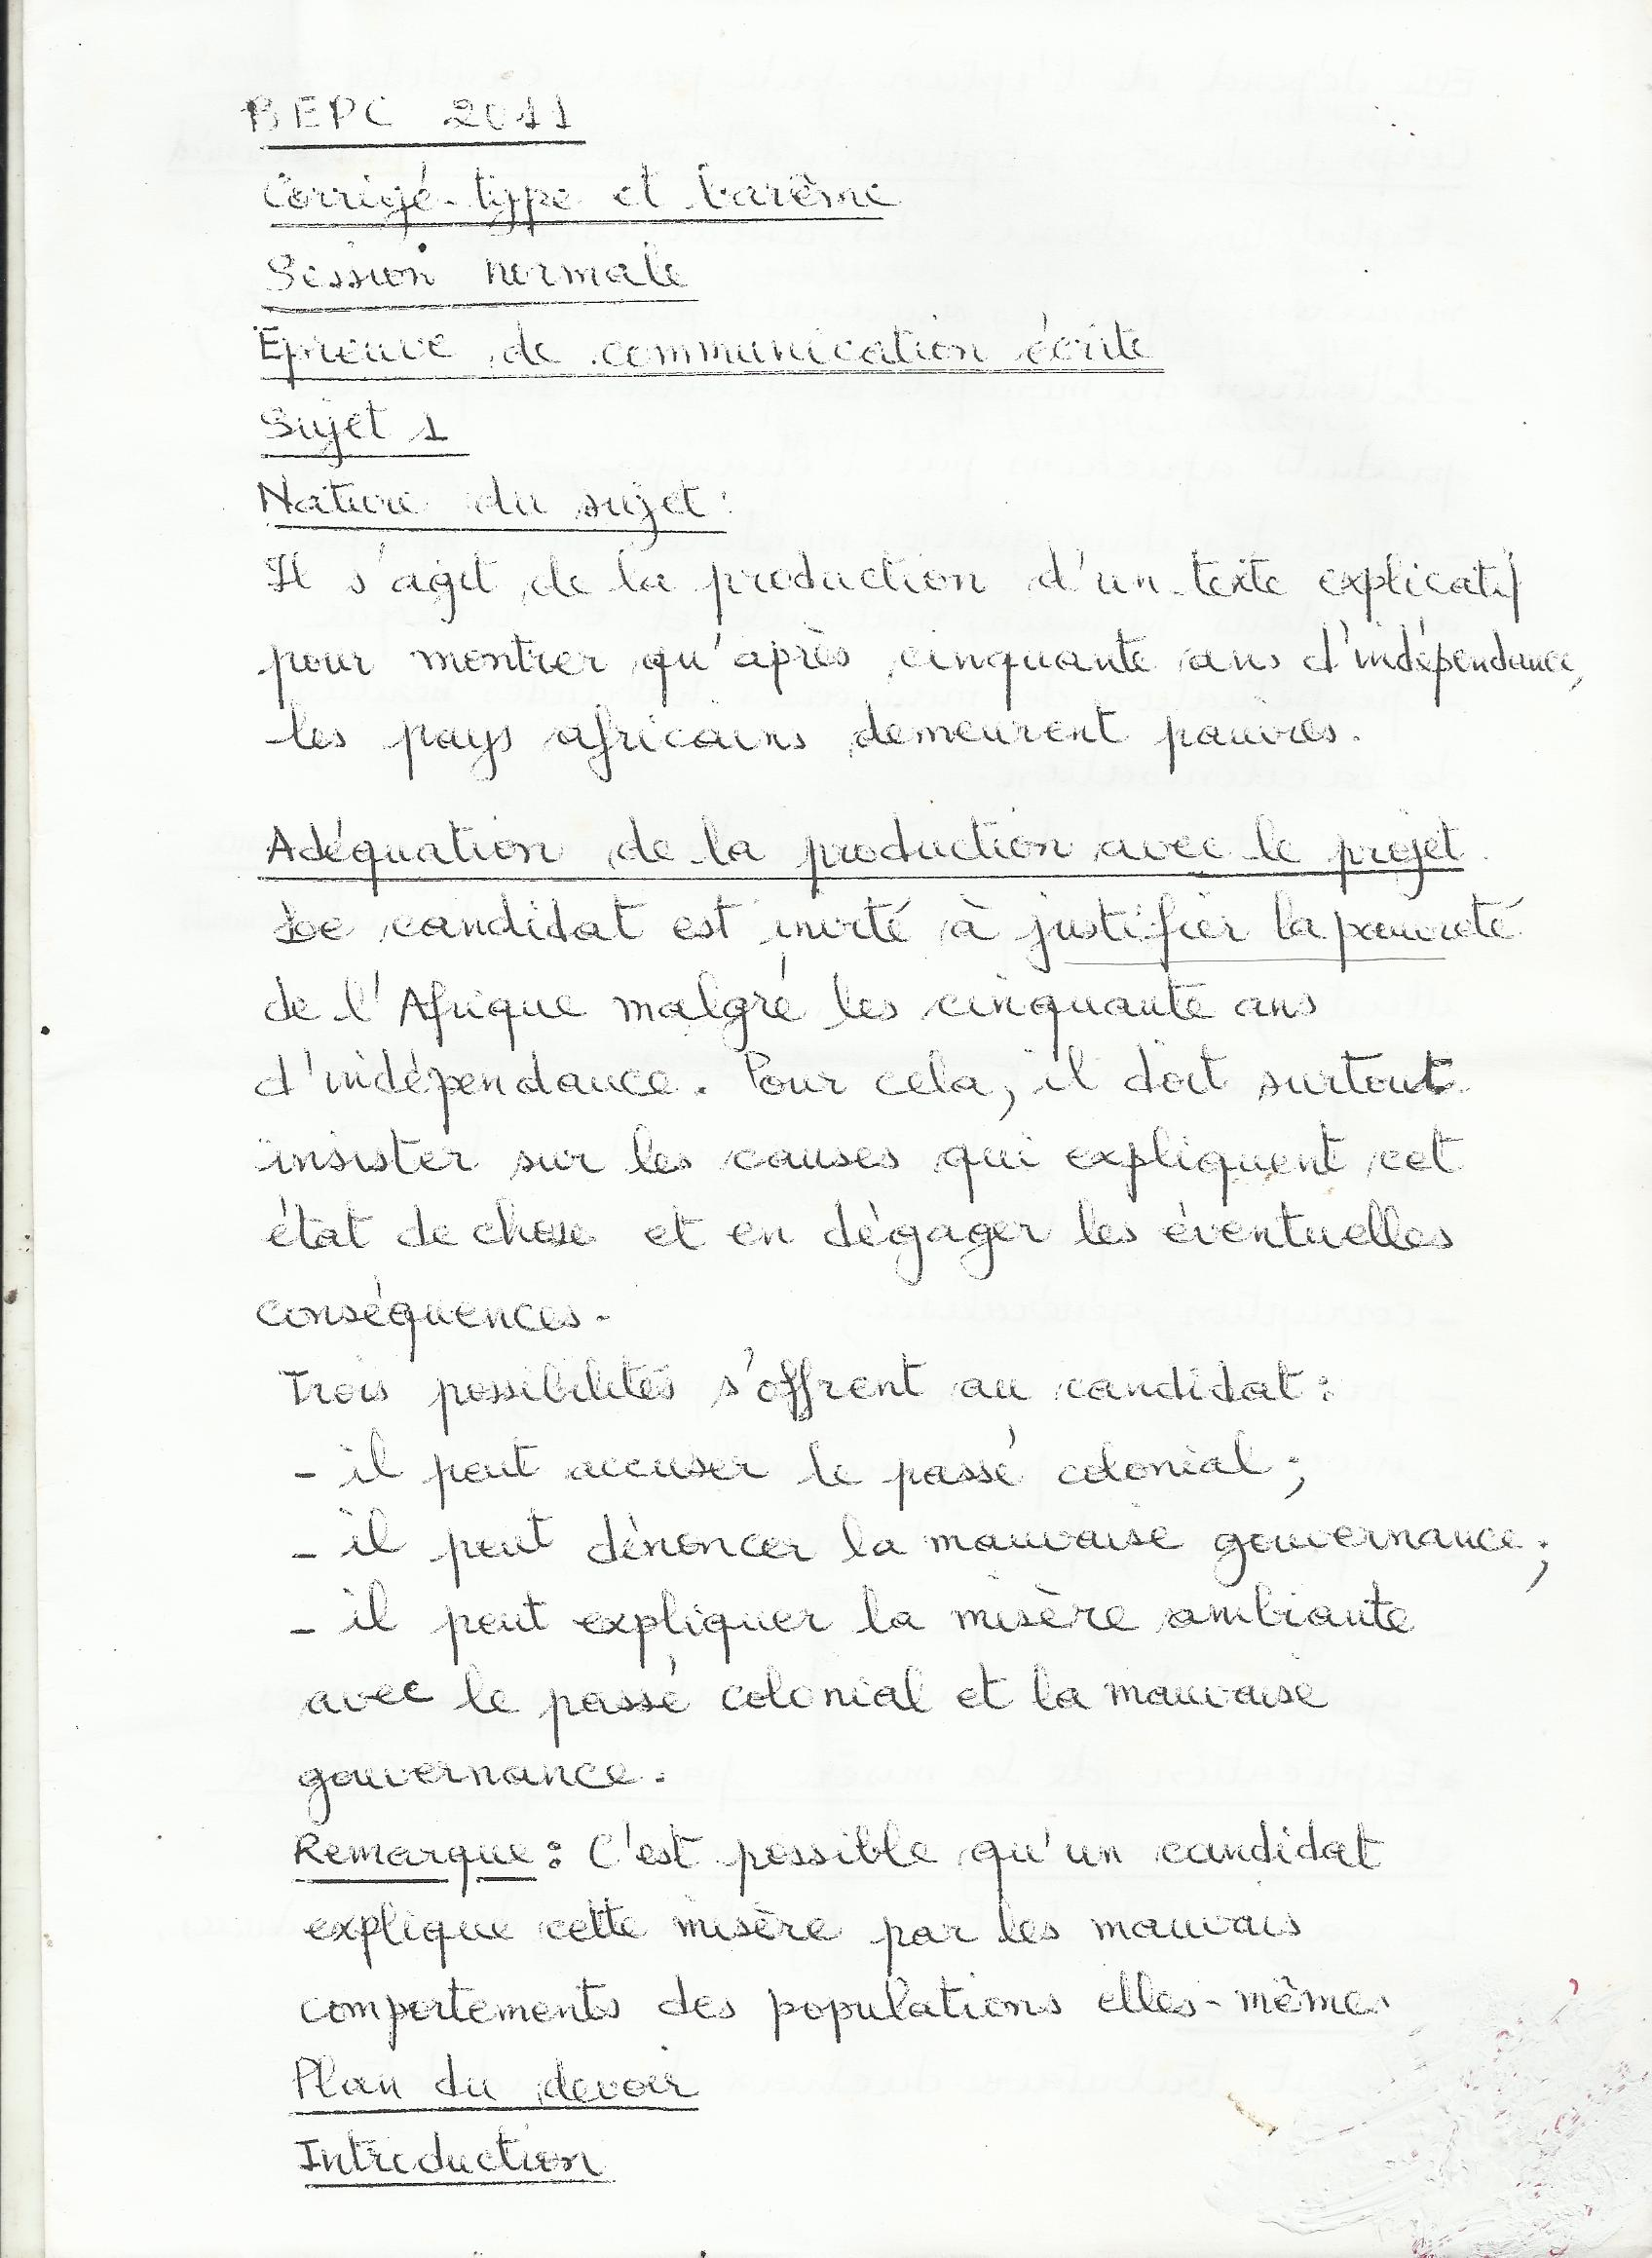 BEPC 2011
Corrigé-type et barème
Session normale
Epreuve de communication écrite
Sujet 1
Nature du sujet:
Il s'agit de la production d'un texte explicatif
pour montrer qu'après cinquante ans d'indépendance,
les pays africains demeurent pauvres.
Adéquation de la production avec le projet
Le candidat est invité à justifier la pauvreté
de l'Afrique malgré les cinquante ans
d'indépendance. Pour cela, il doit surtout
insister sur les causes qui expliquent cet
état de chose et en dégager les éventuelles
conséquences.
Trois possibilités s'offrent au candidat:
- il peut accuser le passé colonial;
- il peut dénoncer la mauvaise gouvernance;
- il peut expliquer la misère ambiante
avec le passé colonial et la mauvaise
gouvernance.
Remarque: C'est possible qu'un candidat
explique cette misère par les mauvais
comportements des populations elles-mêmes
Plan du devoir
Introduction